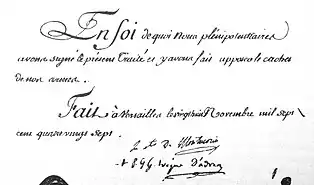 En foi de quoi Nous plénipotentiaires
avons signé le présent Traité et y avons fait apposer le cachet
de nos armes.
Fait à Versailles le vingt huit Novembre mil sept
cent quatre vingt sept.
Le Cte De Montmorin
+ P. J. G. évêque d'adran